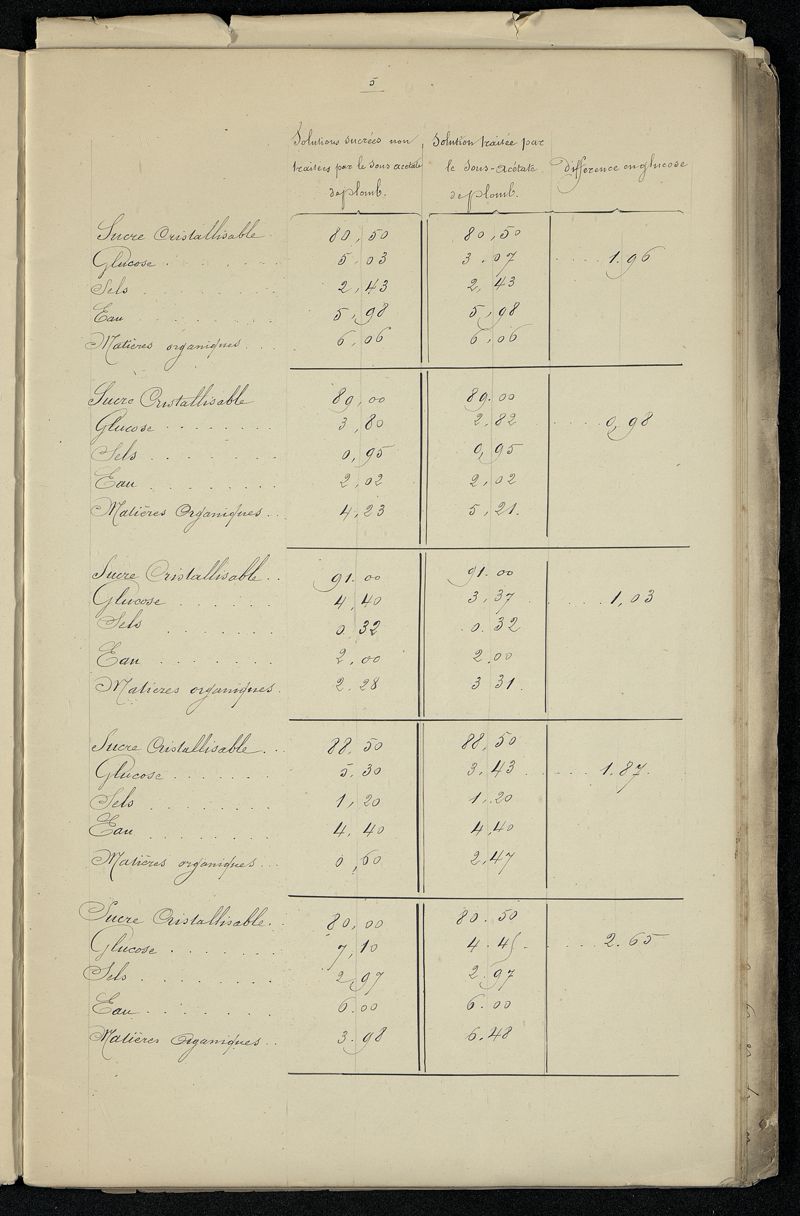 5
Solutions sucrées non traitées par le sous acétate de plomb. Solution traitée par le Sous-Acétate de plomb. Différence en glucose
Sucre Cristallisable 80,50 80,50
Glucose 5.03 3.07 1.96
Sels 2,43 2,43
Eau 5,98 5,98
Matières organiques 6,06 6,06
Sucre Cristallisable 89,00 89.00
Glucose 3,80 2.82 0,98
Sels 0,95 0,95
Eau 2,02 2,02
Matières Organiques 4,23 5,21.
Sucre Cristallisable 91.00 91.00
Glucose 4,40 3,37 1,03
Sels 0.32 0.32
Eau 2,00 2,00
Matieres organiques 2.28 3 31.
Sucre Cristallisable 88.50 88,50
Glucose 5.30 3,43 1.87.
Sels 1,20 1,20
Eau 4,40 4,40
Matières organiques 0,60 2,47
Sucre Cristallisable 80,00 80.50
Glucose 7,10 4.45 2.65
Sels 2,97 2.97
Eau 6.00 6.00
Matières Organiques 3.98 6.48